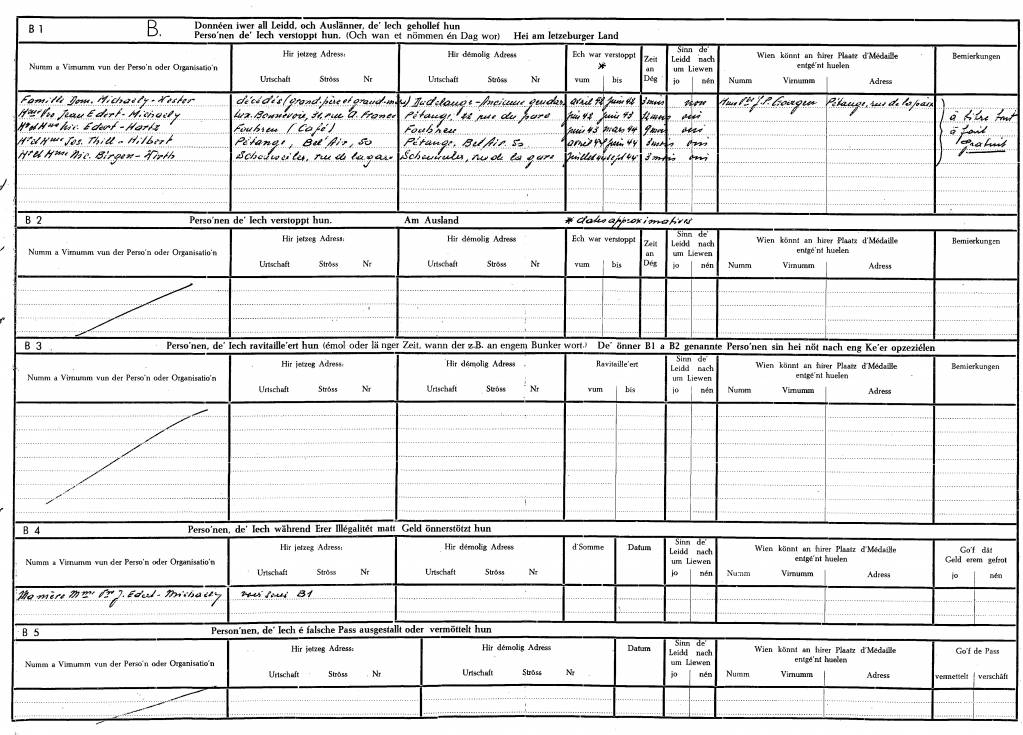 B 1 B. Donnéen iwer all Leidd, och Auslänner, de' Iech gehollef hun
Perso'nen de' Iech verstoppt hun. (Och wan et nömmen én Dag wor) Hei am letzeburger Land
Numm a Virnumm vun der Perso'n oder Organisatio'n
Hir jetzeg Adress:
Urtschaft Ströss Nr
Hir démolig Adress
Urtschaft Ströss Nr
Ech war verstoppt
*
vum bis
Zeit an Dég
Sinn de' Leidd nach um Liewen
jo nén
Wien könnt an hirer Plaatz d'Médaille entgé'nt huelen
Numm Virnumm Adress
Bemierkungen
Famille Dom. Michaely-Kester décédés (grand-père et grand-mère) Dudelange-Ancienne gendar. avril 42 juin 42 3 mois non Mme Vve J.P. Goergen Pétange, rue de la paix
Mme Vve Jean Edert-Michaely Lux. Bonnevoie, 31, rue A. France Pétange, 22 rue du parc juin 42 juin 43 12 mois oui
Mr et Mme Nic. Edert-Hartz Fouhren (Café) Fouhren juin 43 mars 44 9 mois oui
Mr et Mme Jos. Thill-Hilbert Pétange, Bel Air, 50 Pétange, Bel Air 50 avril 44 juin 44 3 mois oui
Mr et Mme Nic. Birgen-Kirth Schouweiler, rue de la gare Schouweiler, rue de la gare juillet 44 sept 44 3 mois oui
à titre tout
à fait
gratuit
B 2 Perso'nen de' Iech verstoppt hun. Am Ausland * dates approximatives
Numm a Virnumm vun der Perso'n oder Organisatio'n
Hir jetzeg Adress:
Urtschaft Ströss Nr
Hir démolig Adress
Urtschaft Ströss Nr
Ech war verstoppt
vum bis
Zeit an Dég
Sinn de' Leidd nach um Liewen
jo nén
Wien könnt an hirer Plaatz d'Médaille entgé'nt huelen
Numm Virnumm Adress
Bemierkungen
B 3 Perso'nen, de' Iech ravitaille'ert hun (émol oder länger Zeit, wann der z.B. an engem Bunker wort.) De' önner B1 a B2 genannte Perso'nen sin hei nöt nach eng Ke'er opzeziélen
Numm a Virnumm vun der Perso'n oder Organisatio'n
Hir jetzeg Adress:
Urtschaft Ströss Nr
Hir démolig Adress
Urtschaft Ströss Nr
Ravitaille'ert
vum bis
Sinn de' Leidd nach um Liewen
jo nén
Wien könnt an hirer Plaatz d'Médaille entgé'nt huelen
Numm Virnumm Adress
Bemierkungen
B 4 Perso'nen, de' Iech während Erer Illégalitét matt Geld önnerstötzt hun
Numm a Virnumm vun der Perso'n oder Organisatio'n
Hir jetzeg Adress:
Urtschaft Ströss Nr
Hir démolig Adress
Urtschaft Ströss Nr
d'Somme
Datum
Sinn de' Leidd nach um Liewen
jo nén
Wien könnt an hirer Plaatz d'Médaille entgé'nt huelen
Numm Virnumm Adress
Go'f dât Geld erem gefrot
jo nén
Ma mère Mme Vve J. Edert-Michaely voir sous B1
B 5 Person'nen, de' Iech é falsche Pass ausgestallt oder vermöttelt hun
Numm a Virnumm vun der Perso'n oder Organisatio'n
Hir jetzeg Adress:
Urtschaft Ströss Nr
Hir démolig Adress
Urtschaft Ströss Nr
Datum
Sinn de' Leidd nach um Liewen
jo nén
Wien könnt an hirer Plaatz d'Médaille entgé'nt huelen
Numm Virnumm Adress
Go'f de Pass
vermettelt verschäft